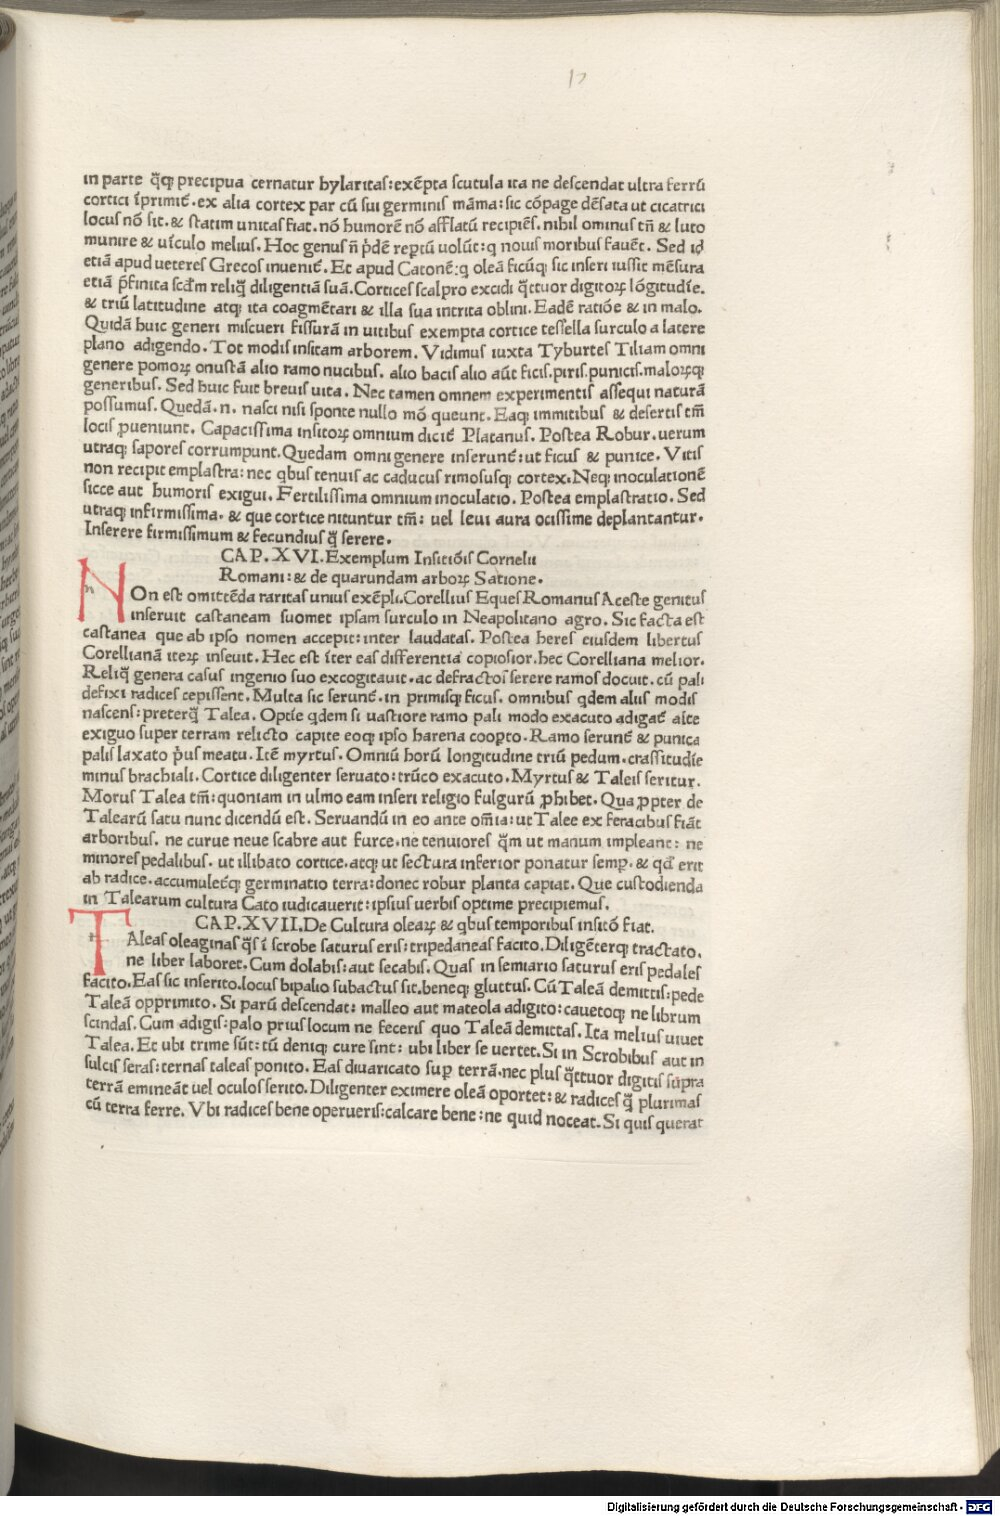 17
in parte q̄cꝗ precipua cernatur hylaritas:exēpta scutula ita ne descendat ultra ferrū
cortici īprimit᷑.ex alia cortex par cū sui germinis māma:sic cōpage dēsata ut cicatrici
locus nō sit.& statim unitas fiat.nō humorē nō afflatū recipiēs.nihil ominus tn̄ & luto
munire & uīculo melius.Hoc genus n̄ p̄dē reꝑtū uolūt:q nouis moribus fauēt.Sed id
etiā apud ueteres Grecos inuenit᷑.Et apud Catonē:q oleā ficūꝗ sic inseri iussit mēsura
etiā p̄finita scd̄m reliq̄ diligentiā suā.Cortices scalpro excidi q̄ttuor digitoꝝ lōgitudīe.
& triū latitudine atꝗ ita coagmētari & illa sua intrita oblini.Eadē ratiōe & in malo.
Quidā huic generi miscueri fissurā in uitibus exempta cortice tessella surculo a latere
plano adigendo.Tot modis insitam arborem.Vidimus iuxta Tyburtes Tiliam omni
genere pomoꝝ onustā alio ramo nucibus.alio bacis alio aūt ficis.piris.punicis.maloꝝꝗ
generibus.Sed huic fuit breuis uita.Nec tamen omnem experimentis assequi naturā
possumus.Quedā.n.nasci nisi sponte nullo mō queunt.Eaꝗ immitibus & desertis tm̄
locis ꝓueniunt.Capacissima insitoꝝ omnium dicit᷑ Platanus.Postea Robur.uerum
utraꝗ sapores corrumpunt.Quedam omni genere inserunt᷑:ut ficus & punice.Vitis
non recipit emplastra:nec qbus tenuis ac caducus rimosusꝗ cortex.Neꝗ inoculationē
sicce aut humoris exigui.Fertilissima omnium inoculatio.Postea emplastratio.Sed
utraꝗ infirmissima.& que cortice nituntur tm̄:uel leui aura ocissime deplantantur.
Inserere firmissimum & fecundius q̄ serere.
CAP.XVI.Exemplum Insitiōis Cornelii
Romani:& de quarundam arboꝝ Satione.
NOn est omittēda raritas unius exēpli.Corellius Eques Romanus Aceste genitus
inseruit castaneam suomet ipsam surculo in Neapolitano agro.Sic facta est
castanea que ab ipso nomen accepit:inter laudatas.Postea heres eiusdem libertus
Corellianā iteꝝ inseuit.Hec est īter eas differentia copiosior.hec Corelliana melior.
Reliq̄ genera casus ingenio suo excogitauit.ac defractoſ serere ramos docuit.cū pali
defixi radices cepissent.Multa sic serunt᷑.in primisꝗ ficus.omnibus qdem aliis modis
nascens:preterq̄ Talea.Optīe qdem si uastiore ramo pali modo exacuto adigat᷑ alte
exiguo super terram relicto capite eoꝗ ipso harena cooꝑto.Ramo serunt᷑ & punica
palis laxato p̄us meatu.Itē myrtus.Omniū horū longitudine triū pedum.crassitudīe
minus brachiali.Cortice diligenter seruato:trūco exacuto.Myrtus & Taleis seritur.
Morus Talea tm̄:quoniam in ulmo eam inseri religio fulgurū ꝓhibet.Qua ꝓpter de
Talearū satu nunc dicendū est.Seruandū in eo ante om̄ia:ut Talee ex feracibus fiāt
arboribus.ne curue neue scabre aut furce.ne tenuiores q̄m ut manum impleant:ne
minores pedalibus.ut illibato cortice.atꝗ ut sectura inferior ponatur semꝑ.& qd̄ erit
ab radice.accumuletꝗ germinatio terra:donec robur planta capiat.Que custodienda
in Talearum cultura Cato iudicauerit:ipsius uerbis optime precipiemus.
CAP.XVII.De Cultura oleaꝝ & qbus temporibus insitō fiat.
TAleas oleaginas q̄s ī scrobe saturus eris:tripedaneas facito.Diligēterꝗ tractato.
ne liber laboret.Cum dolabis:aut secabis.Quas in semiario saturus eris pedales
facito.Eas sic inserito.locus bipalio subactus sit.beneꝗ gluttus.Cū Taleā demittis:pede
Taleā opprimito.Si parū descendat:malleo aut mateola adigito:cauetoꝗ ne librum
scindas.Cum adigis:palo prius locum ne feceris quo Taleā demittas.Ita melius uiuet
Talea.Et ubi trime sūt:tū deniꝗ cure sint:ubi liber se uertet.Si in Scrobibus aut in
sulcis seras:ternas taleas ponito.Eas diuaricato suꝑ terrā.nec plus q̄ttuor digitis sūpra
terrā emineāt uel oculos serito.Diligenter eximere oleā oportet:& radices q̄ plurimas
cū terra ferre.Vbi radices bene operueris:calcare bene:ne quid noceat.Si quis querat
Digitalisierung gefördert durch die Deutsche Forschungsgemeinschaft - DFG